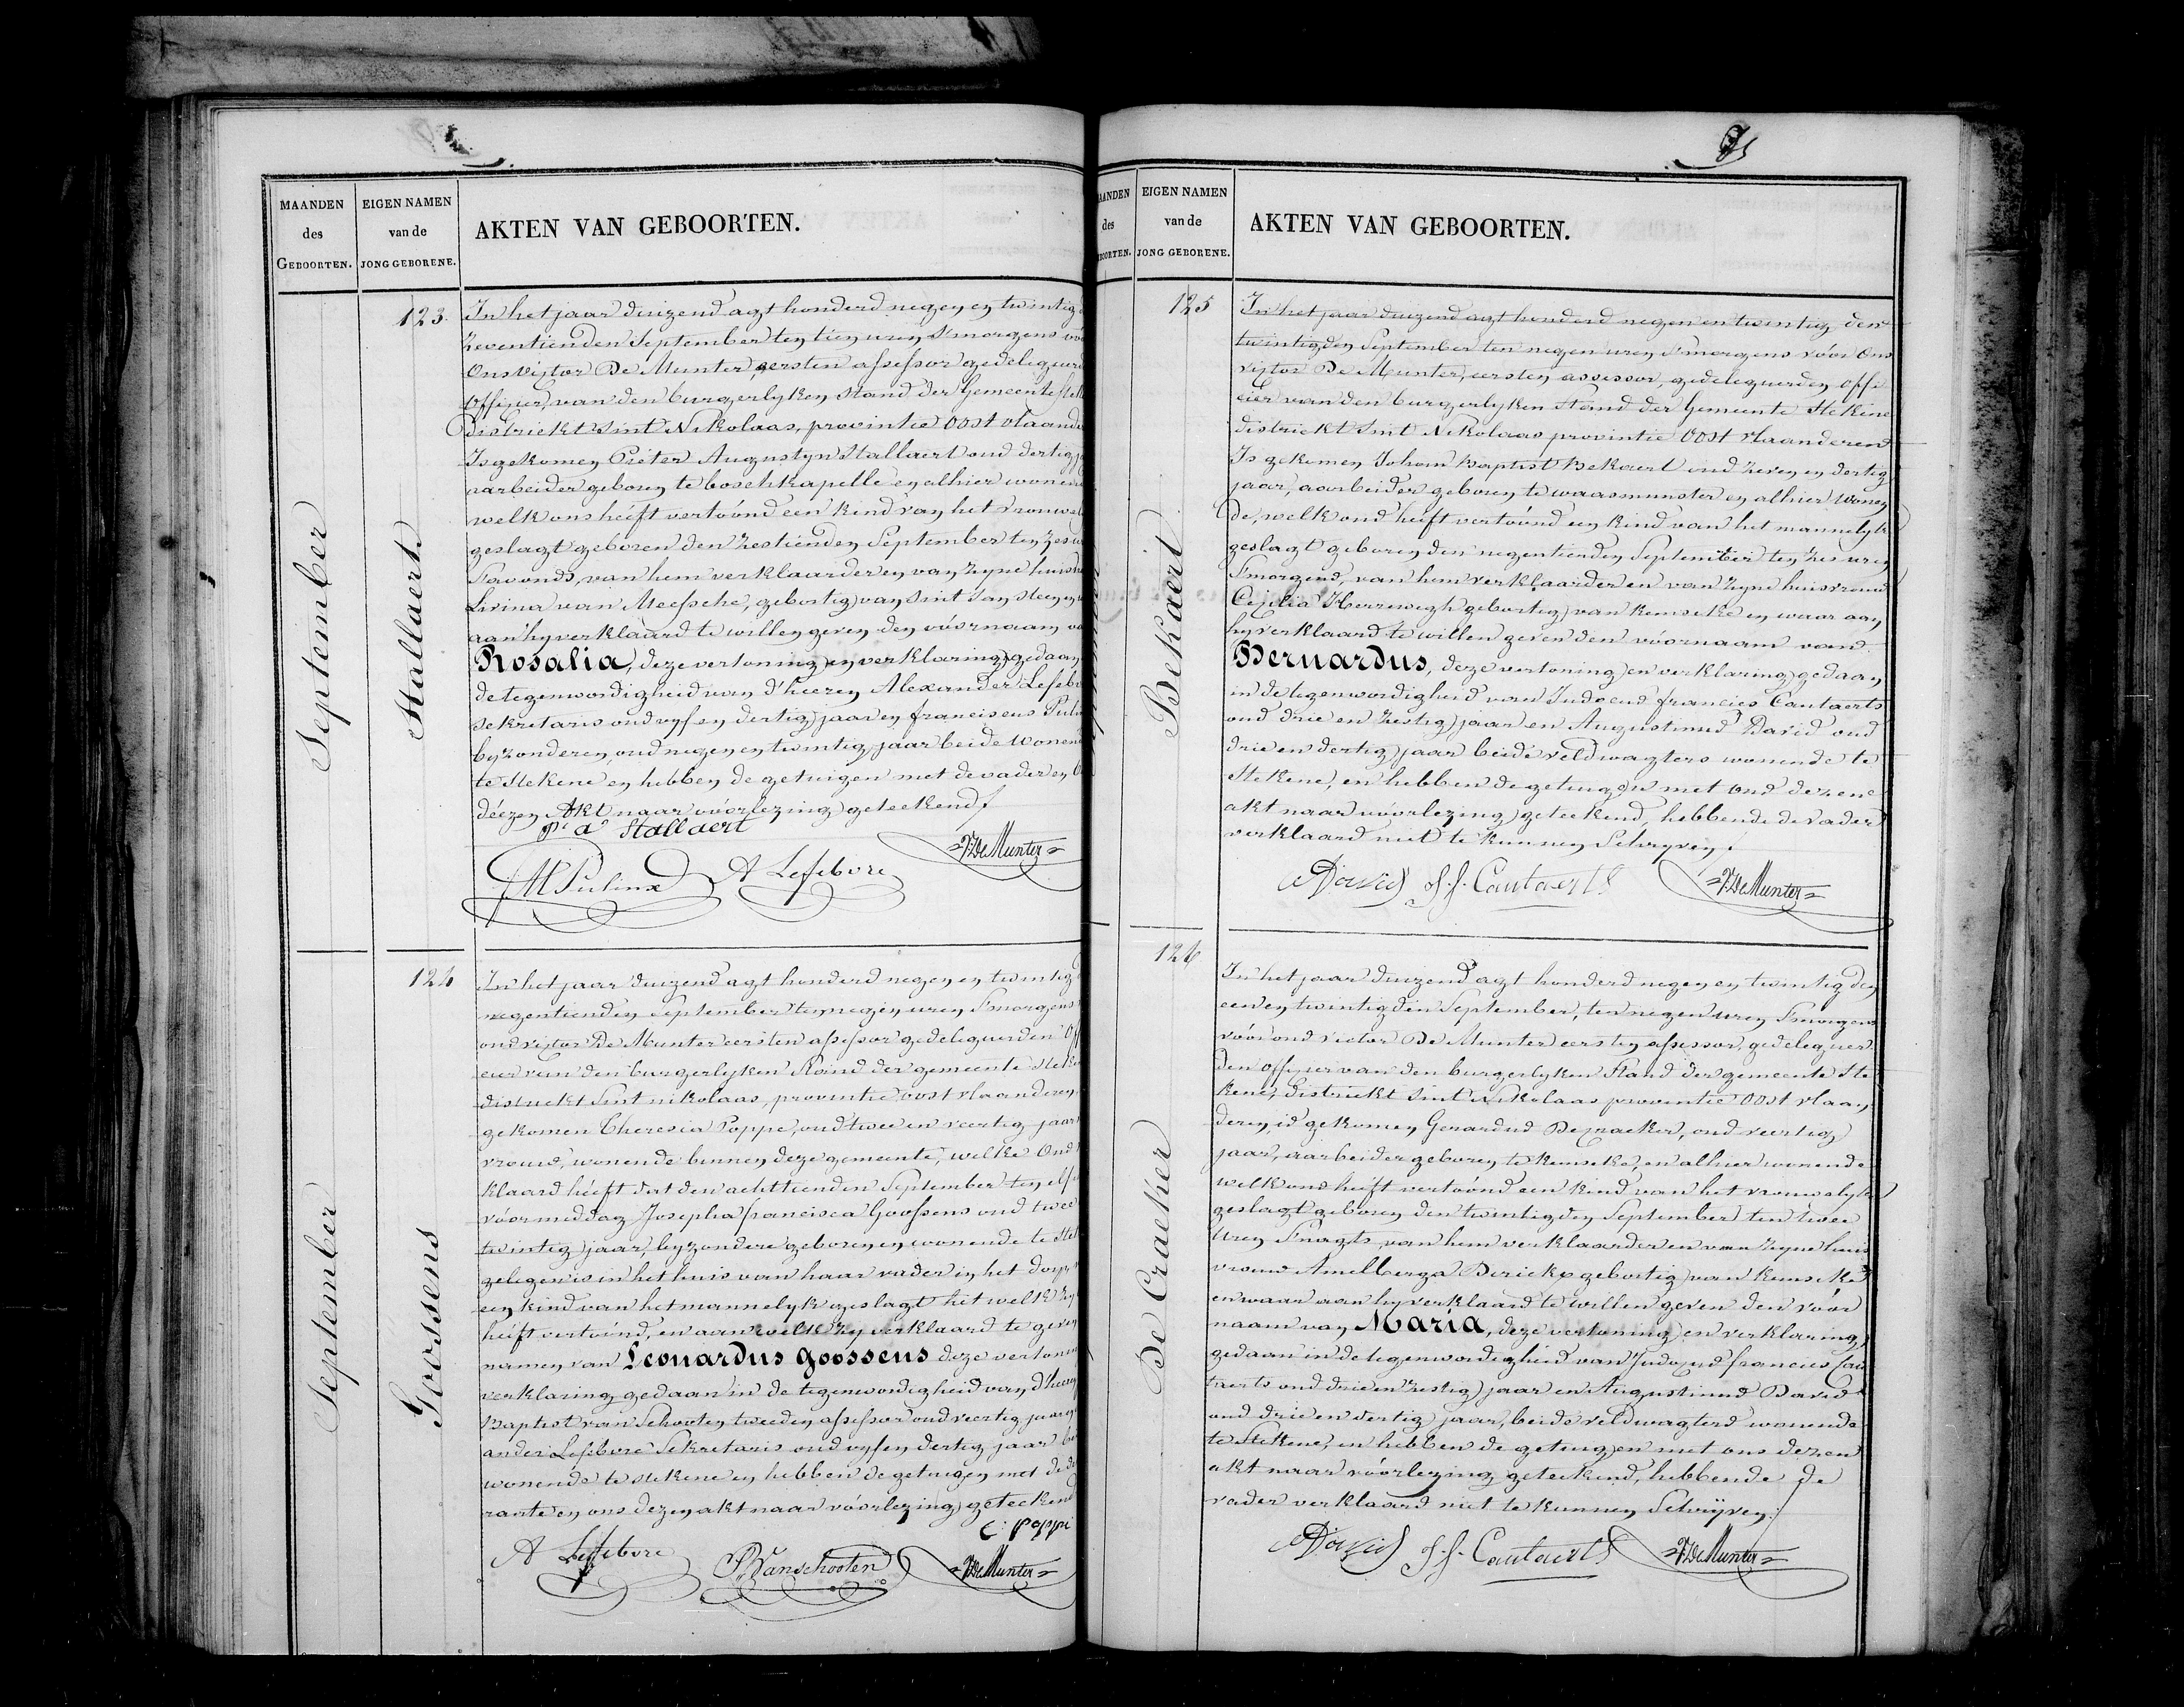 MAANDEN
des
GEBOORTEN.
EIGEN NAMEN
van de
JONG GEBORENE.
AKTEN VAN GEBOORTEN.
September
Stallaert
123.
In het jaar duizend agt honderd negen en twintig
zeventienden September ten tien uren s'morgens vóó
Ons Victor De Munter, eersten assessor gedeleguerd
Officier van den burgerlyken stand der Gemeente Stek
distriekt Sint Nikolaas, provintie Oost vlaande
Is gekomen Pieter Augustyn Stallaert oud dertig
aarbeider geboren te boschkapelle en alhier wonen
welk ons hééft vertoónd een kind van het vrouwel
geslagt geboren den zestienden September ten zes
S'avonds, van hem verklaarder en van zyne huis
Livina van Meessche, gebortig van Sint Jan Steen en
aan hy verklaard te willen geven den vóórnaam va
Rosalia, deze vertoning en verklaring gedaan
de tegenwoordigheid van d'heeren Alexander Lefebv
Sekretaris oud vyf en dertig jaar en franciscus Pul
byzonderen, oud negen en twintig jaar beide wonend
te Stekene en hebben de getuigen met de vader en
déézen Akt naar vóórlezing geteekend
P.r a.s Stallaert
A Lefebvre
V. De Munter
September
Goossens
124
In het jaar duizend agt honderd negen en twintig
negentienden September ten negen uren S'morgens
ons victor De Munter eersten assessor gedeleguerden Off
cier van den burgerlyken Stand der gemeente Steke
distriekt Sint nikolaas, provintie oost vlaanderen
gekomen Theresia Poppe, oud twee en veertig jaar
vrouw, wonende binnen deze gemeente, welke Ons
klaard hééft dat den achttienden September ten elf
vóórmiddag Josepha francisca Goossens oud twee
twintig jaar, byzondere geboren en wonende te Ste
gelegen is in het huis van haar vader in het dorp
een kind van het mannelyk geslagt het welk zy
hééft vertoónd, en aan welk zy verklaard te geven
namen van Leonardus goossens deze vertonin
verklaring gedaan in de tegenwoordigheid van d'heere
Baptist van Schooten tweeden assessor oud veertig jaar
ander Lefebvre Sekretaris oud vyf en dertig jaar be
wonende te stekene en hebben de getuigen met de
rante en ons dezen akt naar vóórlezing geteekend
C: poppe
A Lefebvre
Vanschooten
V. De Munter
MAANDEN
des
GEBOORTEN.
EIGEN NAMEN
van de
JONG GEBORENE.
AKTEN VAN GEBOORTEN.
Bekaert
125
In het jaar duizend agt honderd negen en twintig den
twintigden September ten negen uren s'morgens vóór Ons
victor De Munter, eersten assessor, gedeleguerden offi
cier van den burgerlyken Stand der Gemeente Stekene
distriekt Sint Nikolaas provintie Oost vlaanderen
Is gekomen Johan Baptist Bekaert oud zeven en dertig
jaar, aarbeider geboren te waasmunster en alhier wonen
de, welk ons hééft vertoónd een kind van het mannelyk
geslagt geboren den negentienden September ten zes uren
S'morgens, van hem verklaarder en van zyne huisvrouw
Cecilia Heerwegh gebortig van kemseke en waar aan
hy verklaard te willen geven den vóórnaam van
Bernardus, deze vertoning en verklaring gedaan
in de tegenwoordigheid van Judocus francies Cautaerts
oud drie en zestig jaar en Augustinus David oud
drie en dertig jaar beide veldwagters wonende te
Stekene, en hebben de getuigen met ons dezen
akt naar vóórlezing geteekend, hebbende de vader
verklaard niet te kunnen Schryven
A David
J. f. Cautaerts
V. De Munter
De Craeker
126
In het jaar duizend agt honderd negen en twintig den
een en twintigden September, ten negen uren S'morgens
vóór ons victor De Munter eersten assessor, gedeleguer
den officier van den burgerlyken Stand der gemeente Ste
kene, distriekt Sint Nikolaas provintie Oost vlaan
deren, is gekomen Gerardus De craeker, oud veertig
jaar, aarbeider geboren te kemseke, en alhier woonende
welk ons hééft vertoónd een kind van het vrouwelyk
geslagt geboren den twintigden September ten twee
uren S'nagts, van hem verklaarder en van zyne huis
vrouw Amelberga Derickx gebortig van kemseke
en waar aan hy verklaard te willen geven den vóór
naam van Maria, deze vertoning en verklaring
gedaan in de tegenwoordigheid van Judocus francies Cau
taerts oud drie en zestig jaar en Augustinus David
oud drie en dertig jaar, beide veldwagters wonende
te Stekene, en hebben de getuigen met ons dezen
akt naar vóórlezing geteekend, hebbende de
vader verklaard niet te kunnen Schryven.
A David
J. f. Cautaerts
V. De Munter